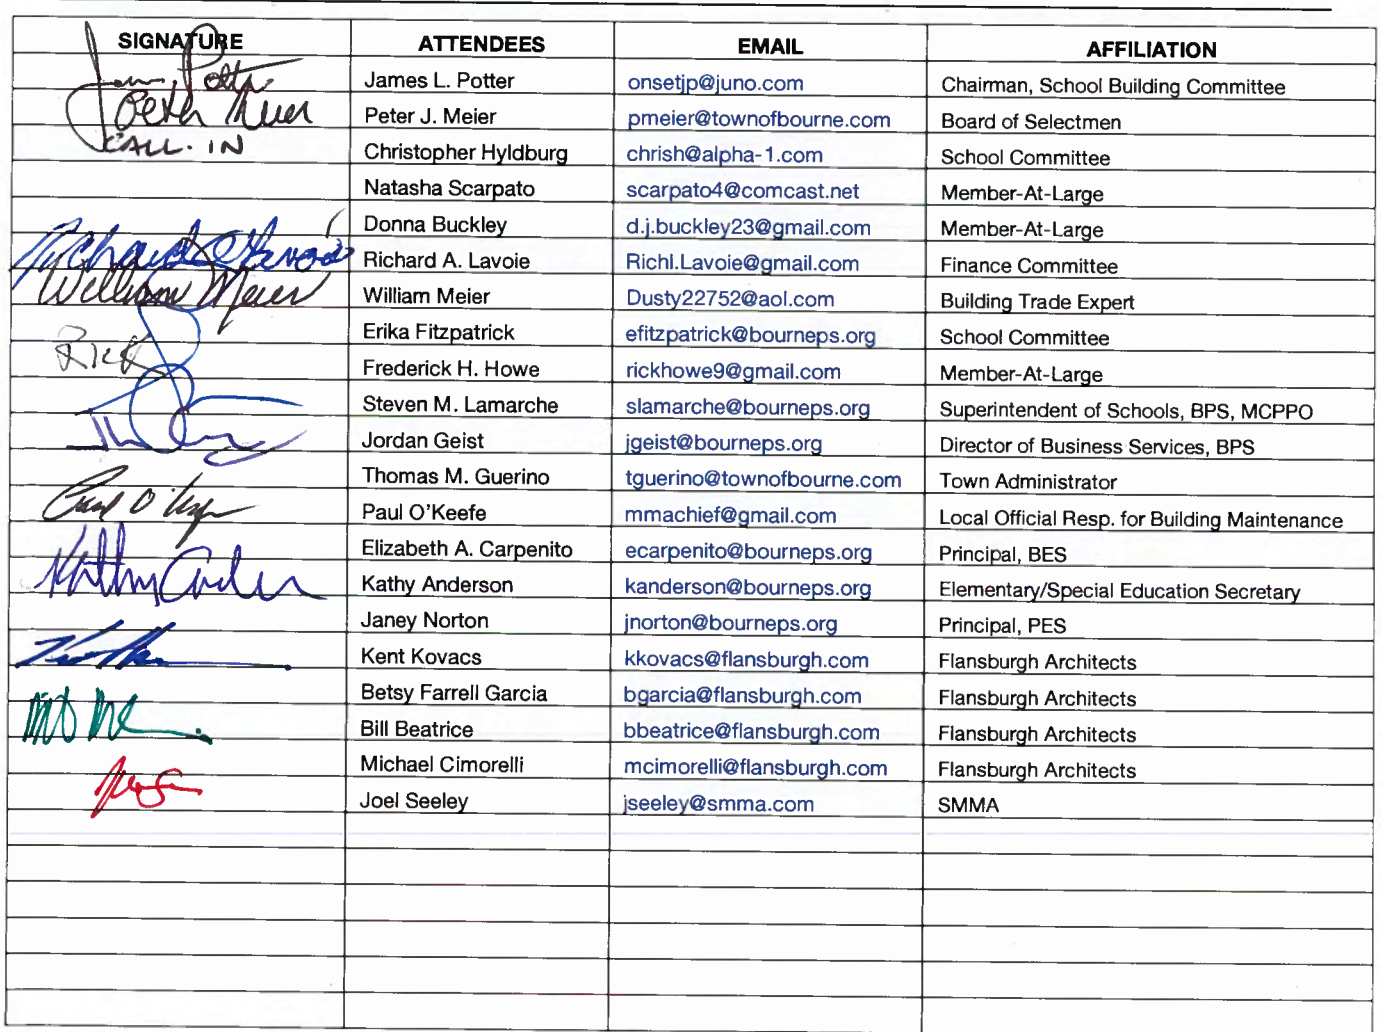 SIGNATURE ATTENDEES EMAIL AFFILIATION
James Potter James L. Potter onsetjp@juno.com Chairman, School Building Committee
Peter Meier Peter J. Meier pmeier@townofbourne.com Board of Selectmen
CALL-IN Christopher Hyldburg chrish@alpha-1.com School Committee
Natasha Scarpato scarpato4@comcast.net Member-At-Large
Donna Buckley d.j.buckley23@gmail.com Member-At-Large
Richard A Lavoie Richard A. Lavoie Richl.Lavoie@gmail.com Finance Committee
William Meier William Meier Dusty22752@aol.com Building Trade Expert
Erika Fitzpatrick efitzpatrick@bourneps.org School Committee
Rick Frederick H. Howe rickhowe9@gmail.com Member-At-Large
Steven M. Lamarche slamarche@bourneps.org Superintendent of Schools, BPS, MCPPO
Jordan Geist jgeist@bourneps.org Director of Business Services, BPS
Thomas M. Guerino tguerino@townofbourne.com Town Administrator
Paul O'Keefe mmachief@gmail.com Local Official Resp. for Building Maintenance
Elizabeth A. Carpenito ecarpenito@bourneps.org Principal, BES
Kathy Anderson kanderson@bourneps.org Elementary/Special Education Secretary
Janey Norton jnorton@bourneps.org Principal, PES
Kent Kovacs kkovacs@flansburgh.com Flansburgh Architects
Betsy Farrell Garcia bgarcia@flansburgh.com Flansburgh Architects
Bill Beatrice bbeatrice@flansburgh.com Flansburgh Architects
Michael Cimorelli mcimorelli@flansburgh.com Flansburgh Architects
Joel Seeley jseeley@smma.com SMMA